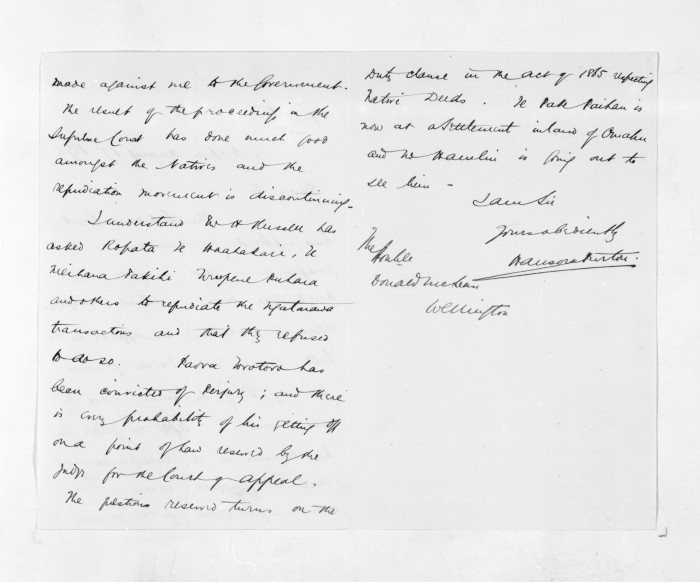 made against me to the Government.
The result of the proceedings in the
Supreme Court has done much good
amongst the Natives and the
repudiation movement is discontinuing.
I understand Mr H Russell has
asked Ropata Te
Meihana Takihi
and others to repudiate the Ngatarawa
transactions and that they refused
to do so. Paora Torotoro has
been convicted of Perjury; and there
is every probability of his getting off
on a point of Law reserved by the
Judge for the Court of Appeal.
The question reserved turns on the
Duty clause in the act of 1865 respecting
Native Deeds. Te
now at a Settlement inland of Omahu
and Mr Hamlin is going out to
see him -
I am Sir
Yours obediently
The
Honble
Donald McLean
Wellington